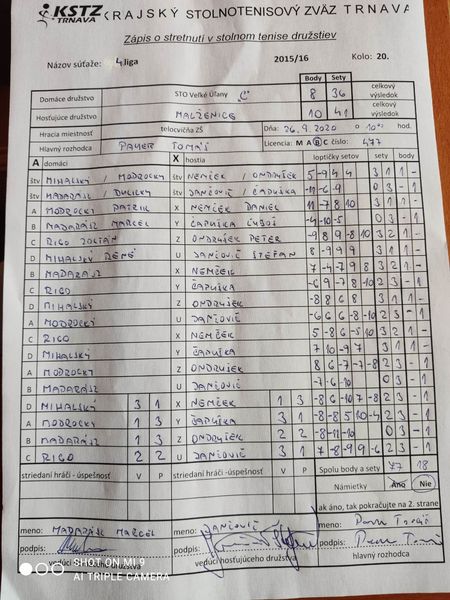 KSTZ TRNAVA KRAJSKÝ STOLNOTENISOVÝ ZVÄZ TRNAVA
Zápis o stretnutí v stolnom tenise družstiev
Názov súťaže: 4 liga 2015/16 Kolo: 20.
Body Sety celkový
Domáce družstvo STO Veľké Úľany "C" 8 36 výsledok
Hosťujúce družstvo MALŽENICE 10 41 celkový výsledok
Hracia miestnosť telocvičňa ZŠ Dňa: 26.9.2020 o hod.
Hlavný rozhodca PAVER TOMÁŠ Licencia: M A B C číslo: 477
A domáci X hostia loptičky setov sety body
štv MIHALSKÝ / MODROCKÝ štv NEMČEK / ONDRUŠEK 5 -9 4 4 3 1 1 -
štv MADARÁSZ / štv DANČOVIČ / ČAPLIKA -11 -6 -9 0 3 - 1
A MODROCKÝ PATRIK X NEMČEK DANIEL 11 -7 8 10 3 1 1 -
B MADARÁSZ MARCEL Y ČAPLIKA ĽUBOŠ -4 -10 -5 0 3 - 1
C RIGO ZOLTÁN Z ONDRUŠEK PETER -9 8 9 -8 10 3 2 1 -
D MIHALSKÝ RENÉ U DANČOVIČ ŠTEFAN 8 -9 9 9 3 1 1 -
B MADARÁSZ X NEMČEK 7 -4 -7 9 8 3 2 1 -
C RIGO Y ČAPLIKA -6 9 -7 8 -10 2 3 - 1
D MIHALSKÝ Z ONDRUŠEK -8 8 6 8 3 1 1 -
A MODROCKÝ U DANČOVIČ -6 6 6 -8 -10 2 3 - 1
C RIGO X NEMČEK 5 -8 6 -5 10 3 2 1 -
D MIHALSKÝ Y ČAPLIKA 7 10 -9 7 3 1 1 -
A MODROCKÝ Z ONDRUŠEK 8 6 -7 -7 -8 2 3 - 1
B MADARÁSZ U DANČOVIČ -7 -6 -10 0 3 - 1
D MIHALSKÝ 3 1 X NEMČEK 1 3 -8 6 -6 10 -8 2 3 - 1
A MODROCKÝ 1 3 Y ČAPLIKA 3 1 -8 -8 5 10 -4 2 3 - 1
B MADARÁSZ 1 3 Z ONDRUŠEK 2 2 -8 -11 -10 0 3 - 1
C RIGO 2 2 U DANČOVIČ 3 1 7 -8 -9 9 -6 2 3 - 1
striedaní hráči - úspešnosť V P striedaní hráči - úspešnosť V P Spolu body a sety 77 18
Námietky Áno Nie
ak áno, tak pokračujte na 2. strane
meno: MADARÁSZ MARCEL DANČOVIČ meno:
podpis: podpis:
vedúci domáceho družstva vedúci hosťujúceho družstva hlavný rozhodca
SHOT ON MI 9
AI TRIPLE CAMERA